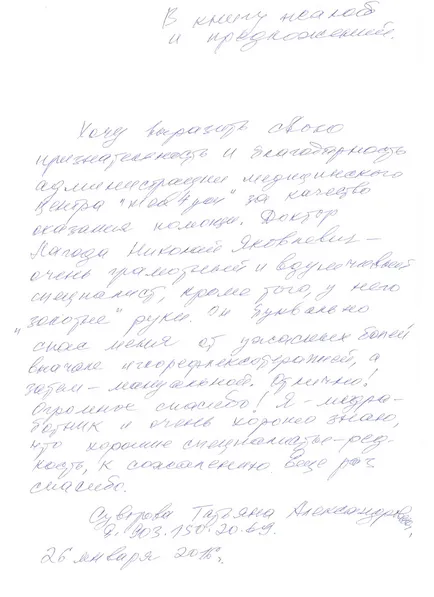 В книгу жалоб
и предложений.
Хочу выразить свою
признательность и благодарность
администрации медицинского
центра за качество
оказания помощи. Доктор
Лагода Николай Яковлевич –
очень грамотный и вдумчивый
специалист, кроме того, у него
"золотые" руки. Он буквально
спас меня от ужасных болей
вначале иглорефлексотерапией, а
затем – мануальной. Отлично!
Огромное спасибо! Я – медра-
ботник и очень хорошо знаю,
что хорошие специалисты – ред-
кость, к сожалению. Еще раз
спасибо.
Татьяна Александровна
8. 903. 150. 20. 69.
26 января